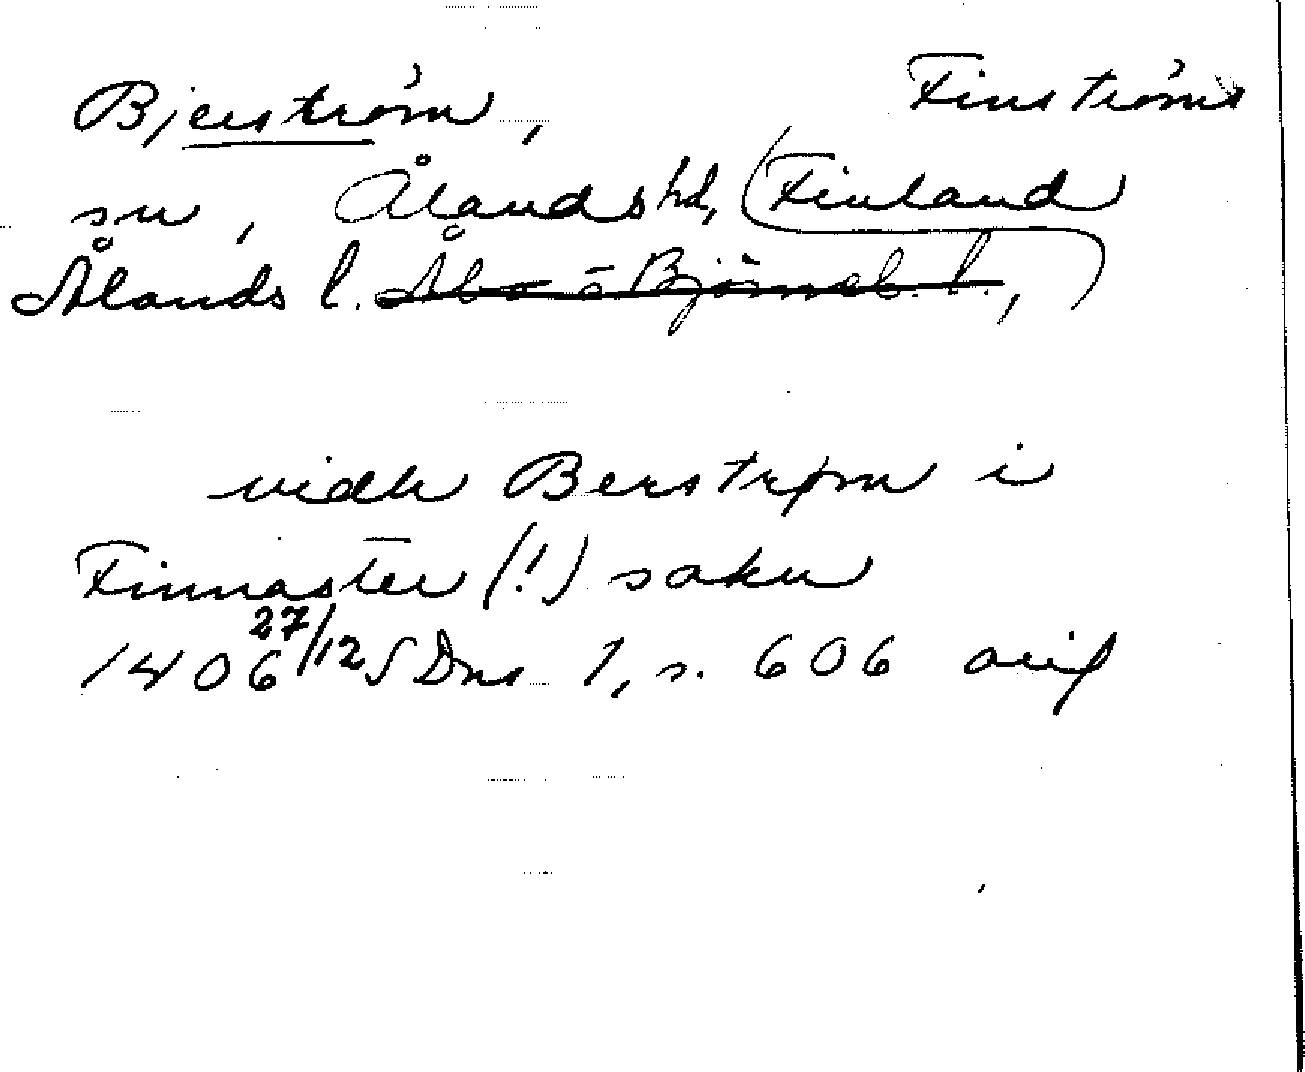 Bjerström, Finströms
sn, Ålands hd, (Finland
Ålands l. Åbo o Björneb. l., )
vidh Berstrøm i
Finnaster (!) sokn
1406 27/12 SDns 1, s. 606 avif